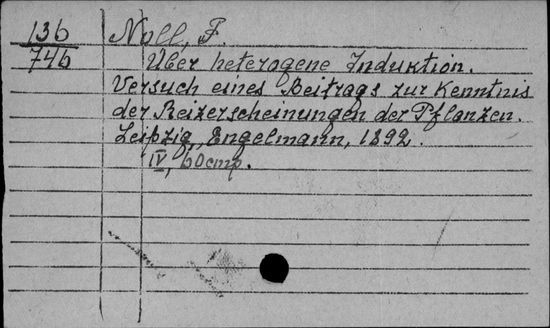 136 Noll, F.
746 Über heterogene Induktion.
Versuch eines Beitrags zur Kenntnis
der Reizerscheinungen der Pflanzen.
Leipzig, Engelmann, 1892.
IV, 60 стр.